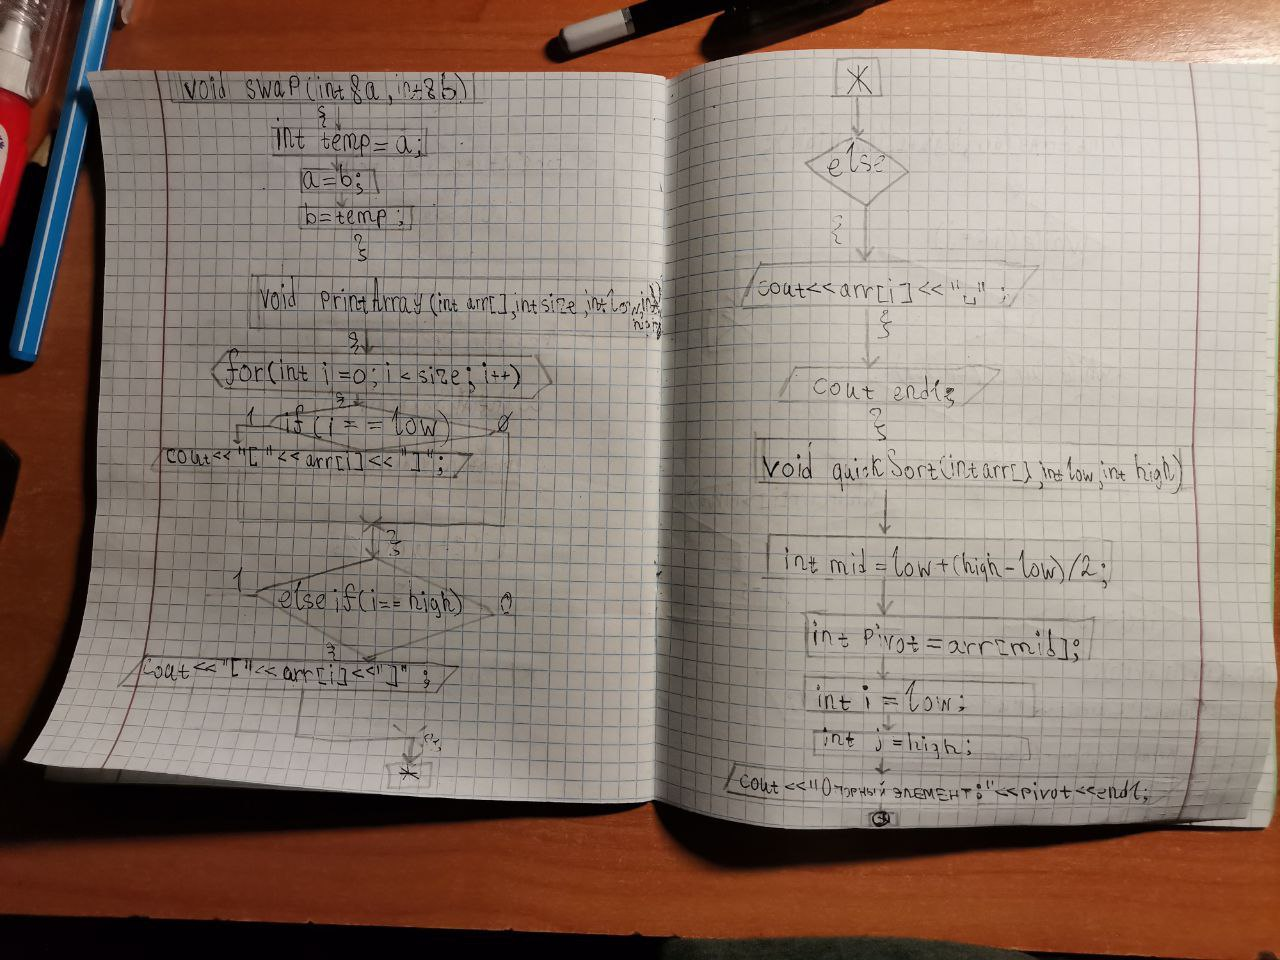 void swap(int &a, int &b)
{
int temp = a;
a=b;
b=temp;
}
void printArray(int arr[], int size, int low, int high)
{
for(int i=0; i<size; i++)
{
1 if(i==low) 0
cout<<"["<<arr[i]<<"]";
}
1 else if(i==high) 0
{
cout<<"["<<arr[i]<<"]";
}
*
*
else
{
cout<<arr[i]<<"␣";
}
cout endl;
}
void quickSort(int arr[], int low, int high)
int mid=low+(high-low)/2;
int pivot=arr[mid];
int i=low;
int j=high;
cout<<"Опорный элемент:"<<pivot<<endl;